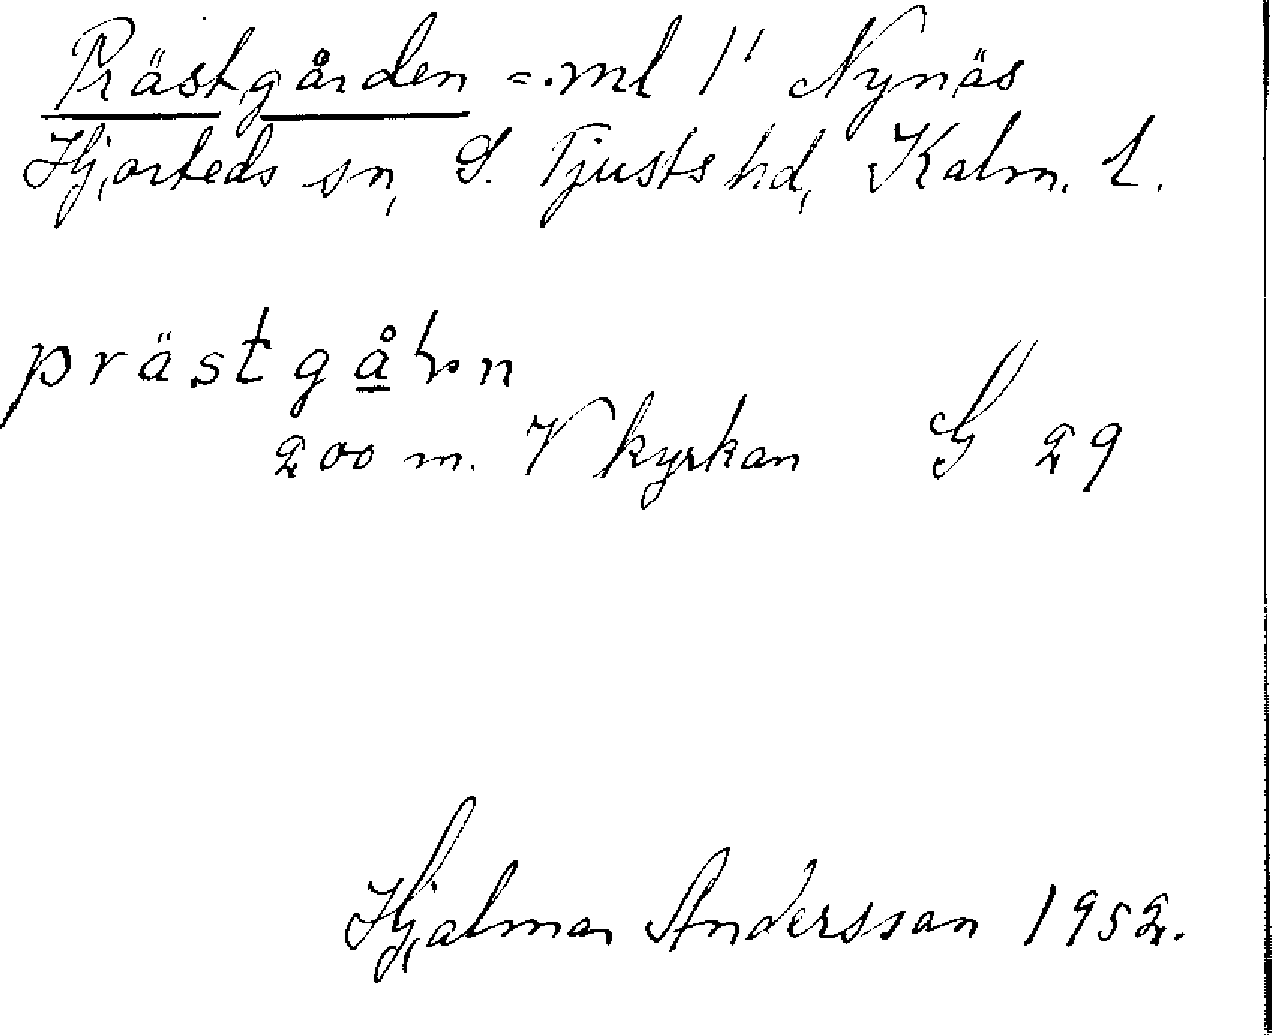 Prästgården =.ml 1' Nynäs
Hjorteds sn, S. Tjusts hd, Kalm. L.
prästgå n
200 m. V kyrkan G 29
Hjalmar Andersson 1952.